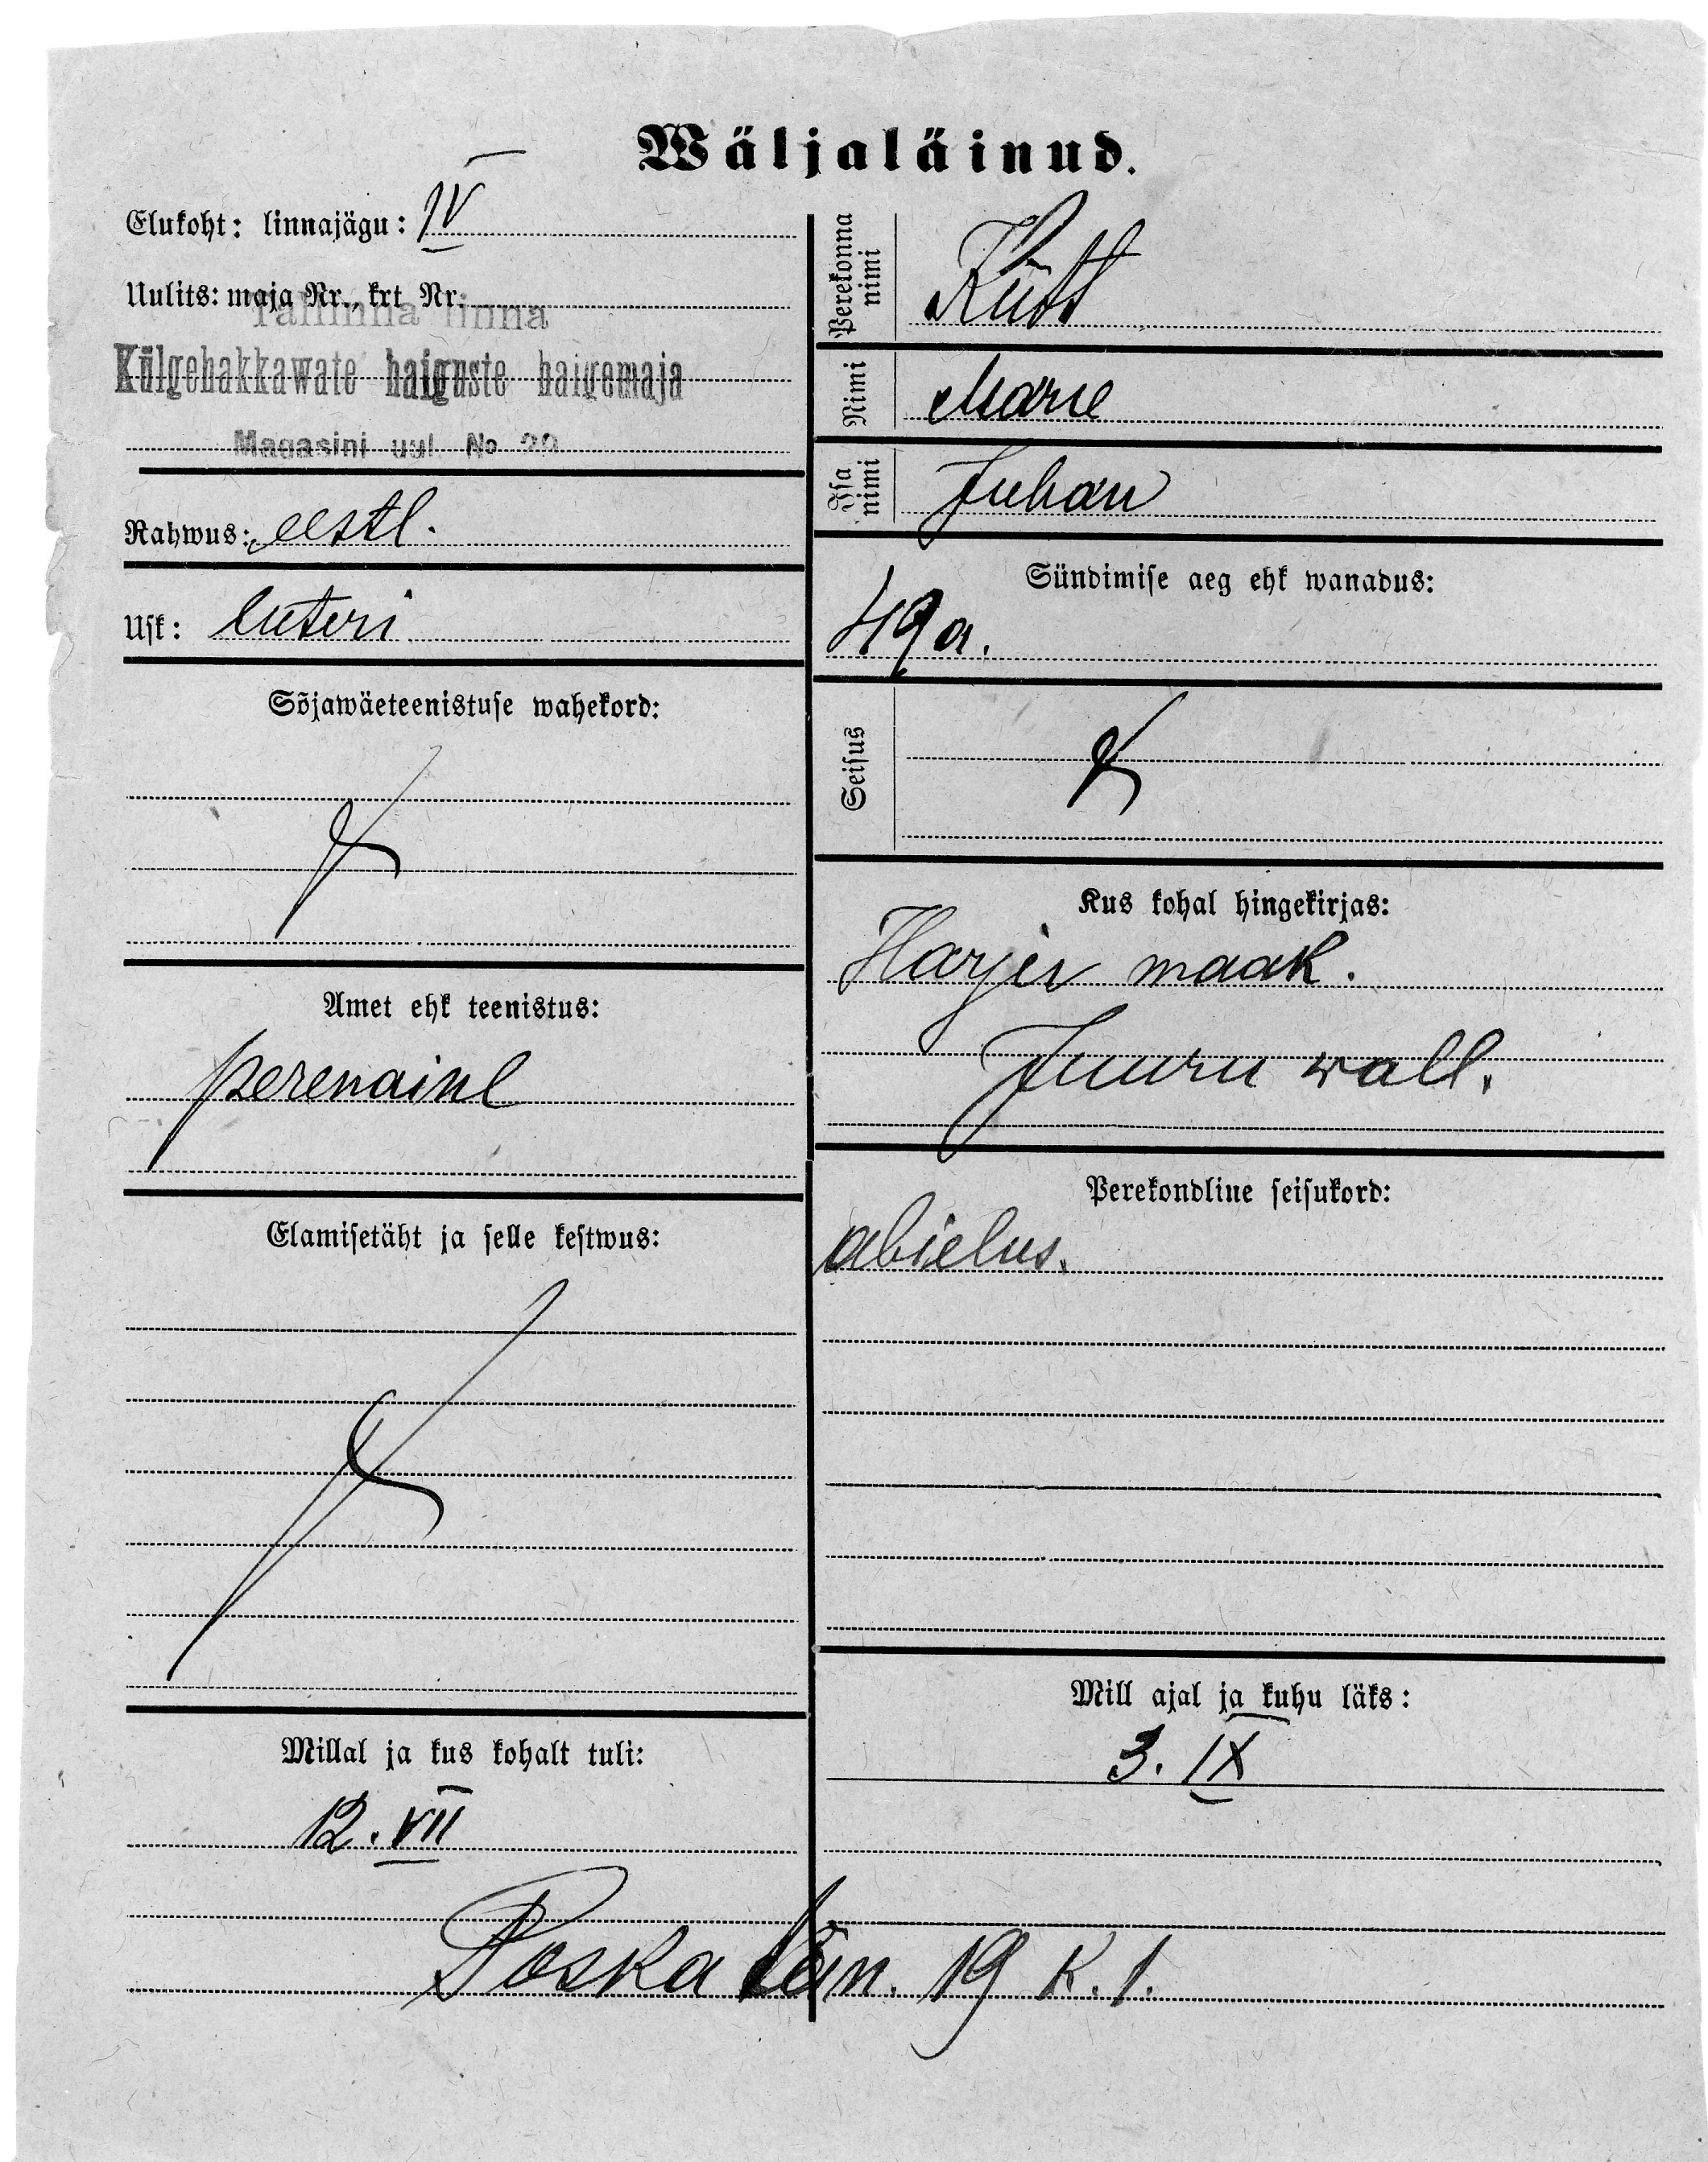 Wäljaläinud.
Elukoht: linnajägu: IV
Uulits: maja Nr., krt Nr.
Tallinna linna
Külgehakkawate haiguste haigemaja
Magasini uul. No
Rahwus: eestl.
Usk: luteri
Sõjawäeteenistuse wahekord:
Amet ehk teenistus:
perenaine
Elamisetäht ja selle kestwus:
Millal ja kus kohalt tuli:
12. VII
Perekonna nimi
Kütt
Nimi Marie
Isa nimi Juhan
Sündimise aeg ehk wanadus:
49 a.
Seisus
Kus kohal hingekirjas:
Harju maak.
Juuru wall.
Perekondline seisukord:
abielus.
Mill ajal ja kuhu läks:
3. IX
Poska tän. 19 K. 1.